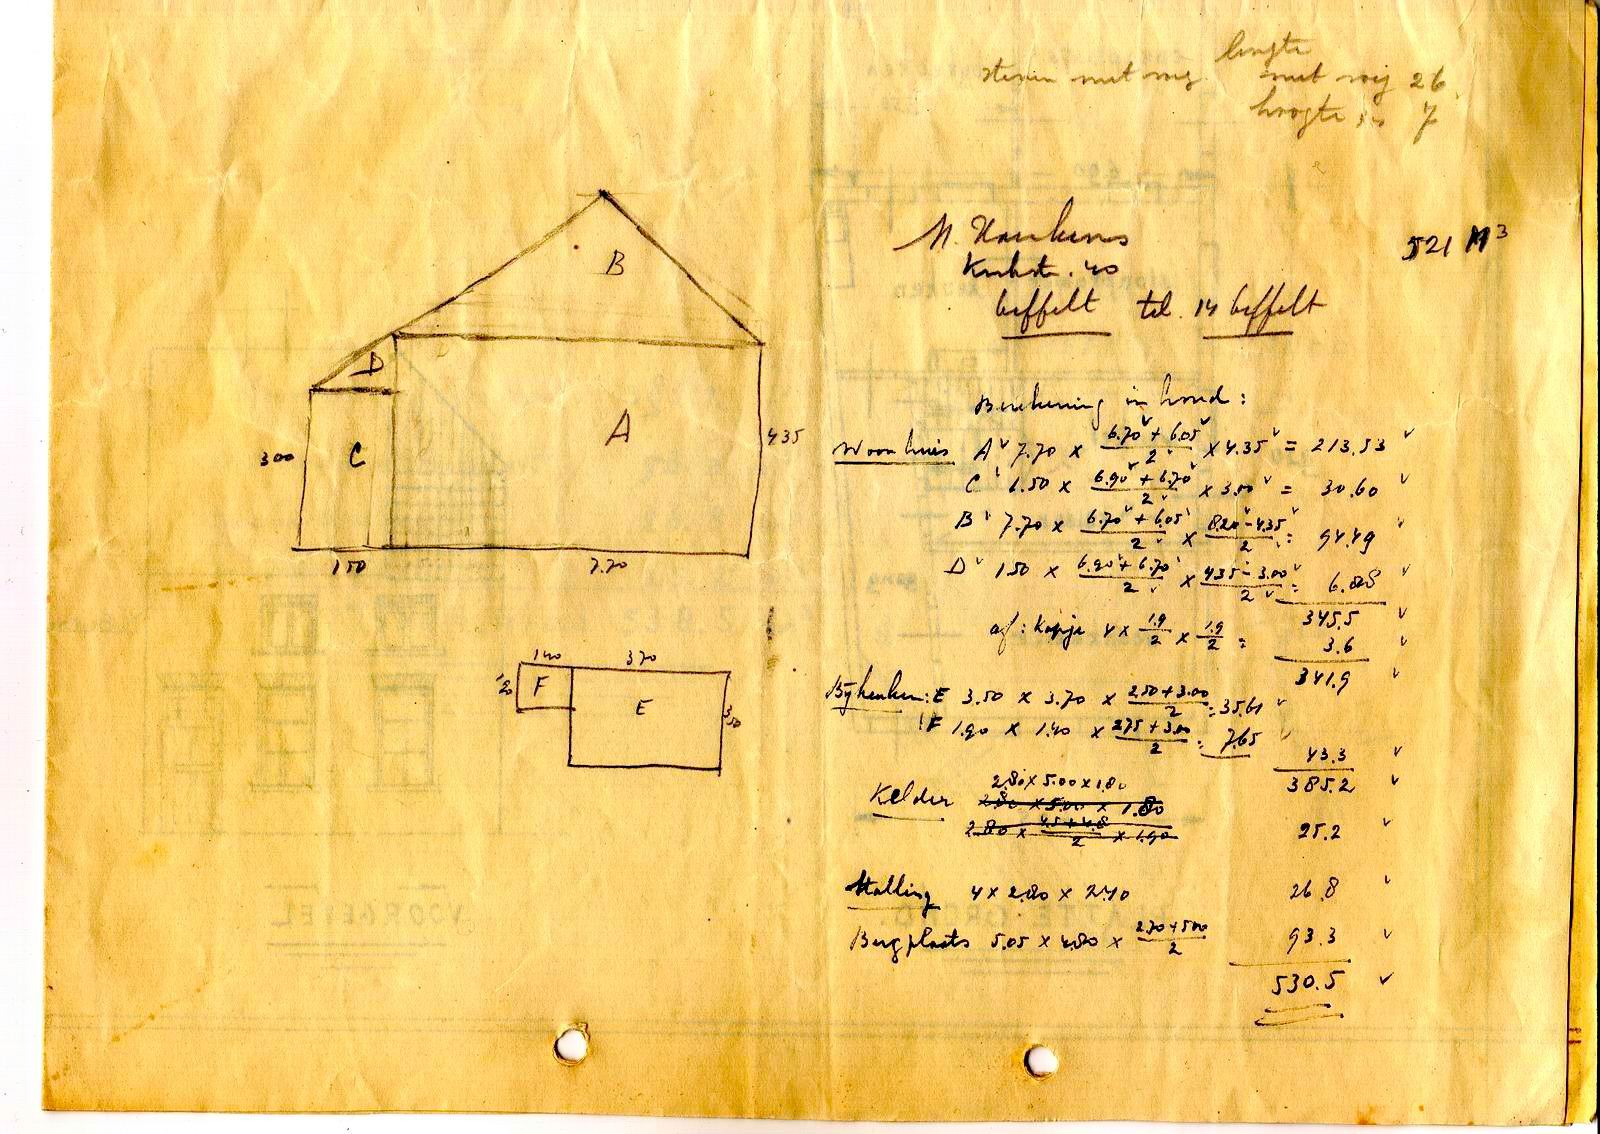 lengte
stenen met voeg met voeg 26
hoogte is 7
521 M³
M.
40
beffelt tel. 14 beffelt
B
D
A
C
300
435
150
7.70
140 370
F
E
350
Berekening inhoud:
Woonhuis A 7.70 × (6.70 + 6.05)/2 × 4.35 = 213.53
C 1.50 × (6.90 + 6.70)/2 × 3.00 = 30.60
B 7.70 × (6.70 + 6.05)/2 × (8.20 - 4.35)/2 = 94.49
D 1.50 × (6.90 + 6.70)/2 × (4.35 - 3.00)/2 = 6.88
345.5
af: Kapje 4 × 1.9/2 × 1.9/2 = 3.6
341.9
Bykeuken: E 3.50 × 3.70 × (2.50 + 3.00)/2 = 35.61
F 1.90 × 1.40 × (2.75 + 3.00)/2 = 7.65
43.3
385.2
Kelder 2.80 × 5.00 × 1.80
2.80 × 5.00 × 1.80
2.80 × (4.5 + 4.8)/2 × 1.90 25.2
Stalling 4 × 2.80 × 2.40 26.8
Bergplaats 5.05 × 4.80 × (2.70 + 5.00)/2 93.3
530.5
VOORGEVEL